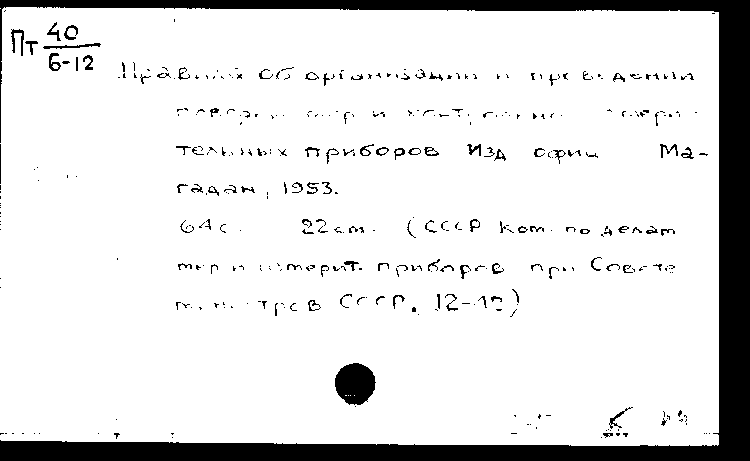 Пт 40
6-12
Правила об организации и проведении
поверки мер и контрольно измери-
тельных приборов Изд офиц Ма-
гадан, 1953.
64с. 22см. (СССР Ком. по делам
мер и измерит. приборов при Совете
министров СССР. 12-12)